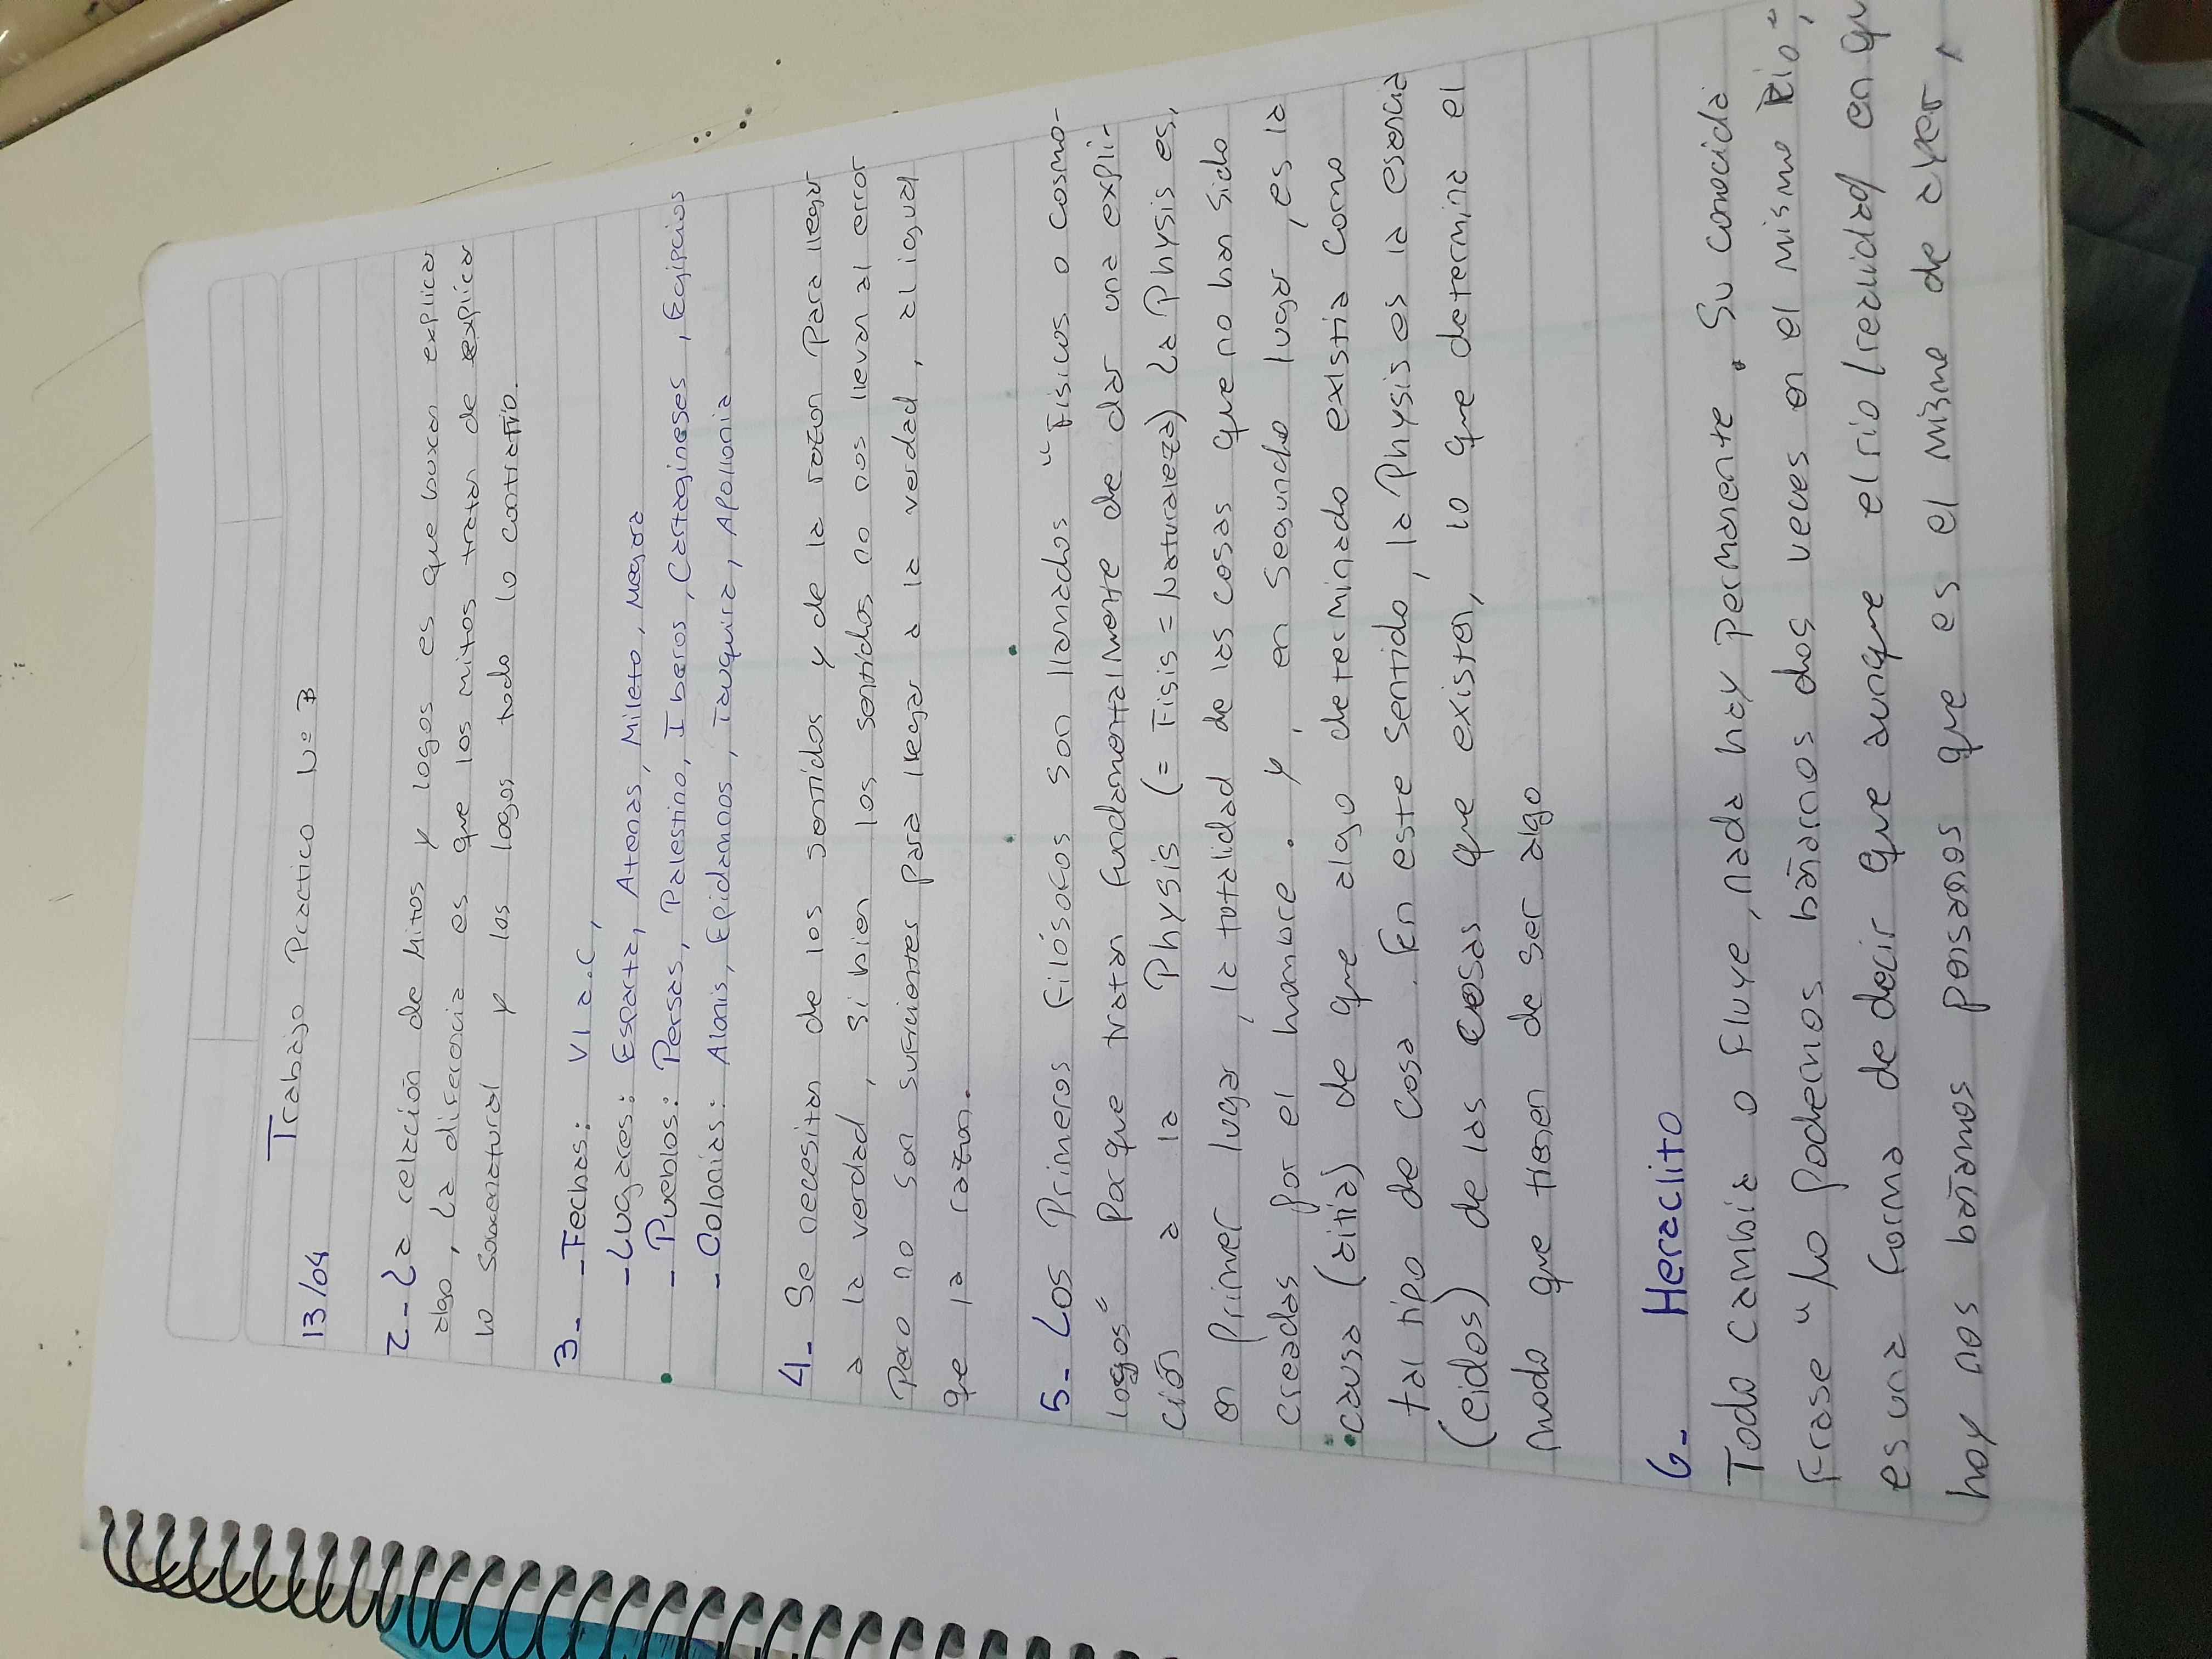 Trabajo Practico N° 3
13/04
2- La relación de Mitos y logos es que buxcan explicar
algo, La diferencia es que los mitos tratan de explicar
lo sobrenatural y los logos todo lo contrario.
3- - Fechas: VI a.C,
- Lugares: Esparta, Atenas, Mileto, Megara
- Pueblos: Persas, Palestino, Iberos, Cartagineses, Egipcios
- Colonias: Alonis, Epidamnos, Tauquira, Apollonia
4- Se necesitan de los sentidos y de la razon Para llegar
a la verdad, si bien los sentidos no nos llevan al error
Pero no son suficientes para llegar a la verdad, al igual
que la razon.
5- Los Primeros Filósofos son llamados "Fisicos o cosmo-
logos" Porque tratan fundamentalmente de dar una expli-
ción a la Physis (= Fisis = Naturaleza) La Physis es,
en primer lugar, la totalidad de las cosas que no han sido
creadas por el hombre. y, en segundo lugar, es la
causa (aitia) de que algo determinado exista como
tal tipo de cosa. En este sentido, la Physis es la esencia
(eidos) de las cosas que existen, lo que determina el
modo que tienen de ser algo
6- Heraclito
Todo cambia o Fluye, nada hay Permanente. Su conocida
Frase "No Podemos bañarnos dos veces en el mismo Rio",
es una forma de decir que aunque el rio (realidad) en qu
hoy nos bañamos pensamos que es el mismo de ayer,